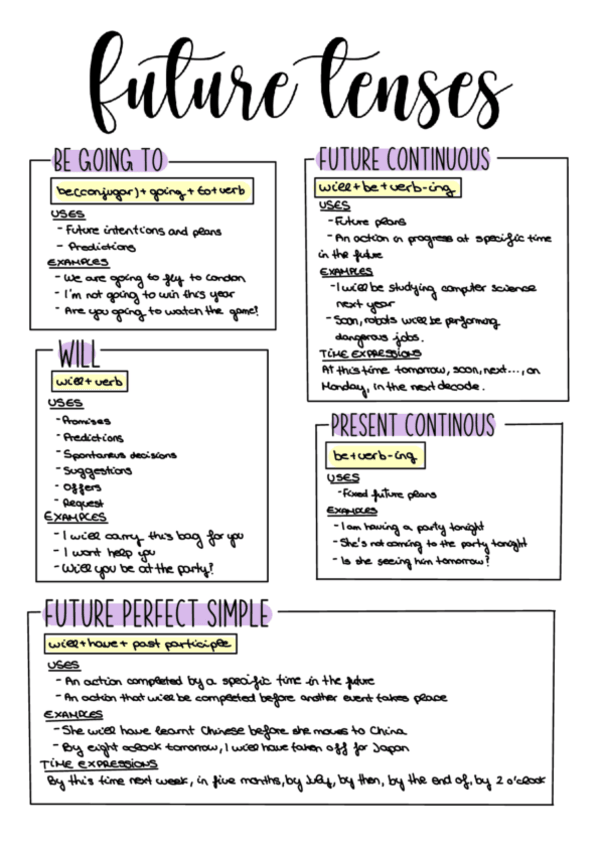 future tenses
BE GOING TO
be(conjugar)+going+to+verb
USES
- Future intentions and plans
- Predictions
EXAMPLES
- We are going to fly to London
- I'm not going to win this year
- Are you going to watch the game?
WILL
will+verb
USES
- Promises
- Predictions
- Spontaneus decisions
- Suggestions
- Offers
- Request
EXAMPLES
- I will carry this bag for you
- I wont help you
- Will you be at the party?
FUTURE CONTINUOUS
will+be+verb-ing
USES
- Future plans
- An action in progress at specific time
in the future
EXAMPLES
- I will be studying computer science
next year
- Soon, robots will be performing
dangerous jobs.
TIME EXPRESSIONS
At this time tomorrow, soon, next..., on
Monday, in the next decade.
PRESENT CONTINOUS
be+verb-ing
USES
- Fixed future plans
EXAMPLES
- I am having a party tonight
- She's not coming to the party tonight
- Is she seeing him tomorrow?
FUTURE PERFECT SIMPLE
will+have+past participle
USES
- An action completed by a specific time in the future
- An action that will be completed before another event takes place
EXAMPLES
- She will have learnt Chinese before she moves to China
- By eight oclock tomorrow, I will have taken off for Japan
TIME EXPRESSIONS
By this time next week, in five months, by July, by then, by the end of, by 2 o'clock